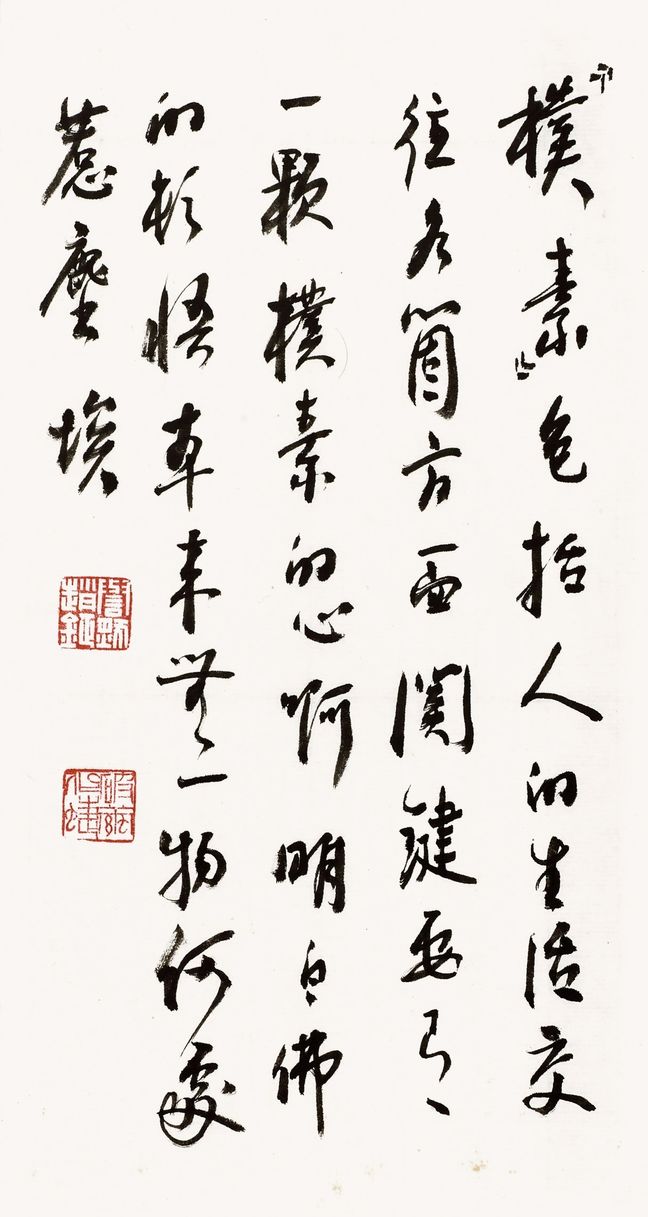 「樸素」包括人的生活交
往各箇方面関鍵要有、
一顆樸素的心啊明白佛
的頓悟本来無一物何處
惹塵埃